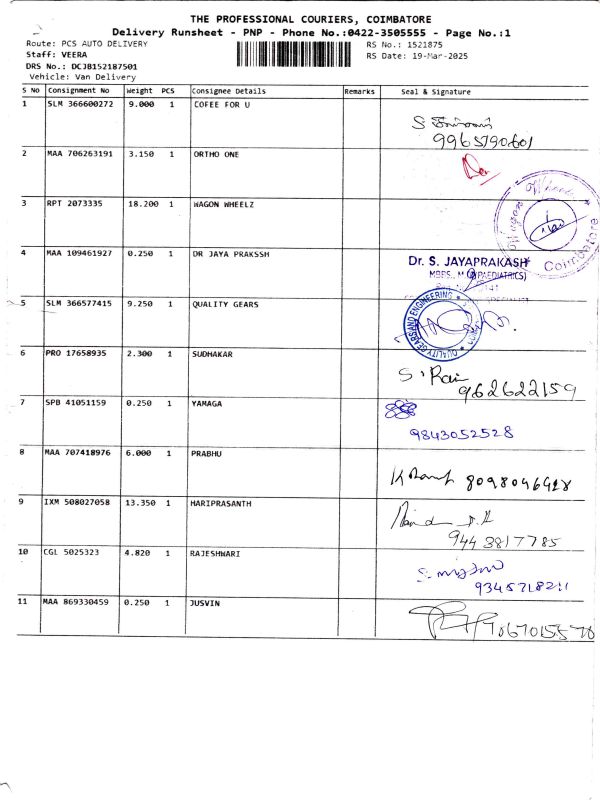 THE PROFESSIONAL COURIERS, COIMBATORE
Delivery Runsheet - PNP - Phone No.:0422-3505555 - Page No.:1
Route: PCS AUTO DELIVERY RS No.: 1521875
Staff: VEERA RS Date: 19-Mar-2025
DRS No.: DCJB152187501
Vehicle: Van Delivery
S No Consignment No Weight PCS Consignee Details Remarks Seal & Signature
1 SLM 366600272 9.000 1 COFEE FOR U
9965790601
2 MAA 706263191 3.150 1 ORTHO ONE
3 RPT 2073335 18.200 1 WAGON WHEELZ
Wagon Wheelz
Coimbatore
4 MAA 109461927 0.250 1 DR JAYA PRAKSSH
Dr. S. JAYAPRAKASH
MBBS., (PAEDIATRICS)
5 SLM 366577415 9.250 1 QUALITY GEARS
QUALITY GEARS AND ENGINEERING
6 PRO 17658935 2.300 1 SUDHAKAR
962622159
7 SPB 41051159 0.250 1 YAMAGA
9843052528
8 MAA 707418976 6.000 1 PRABHU
9 IXM 508027058 13.350 1 HARIPRASANTH
9443817785
10 CGL 5025323 4.820 1 RAJESHWARI
11 MAA 869330459 0.250 1 JUSVIN